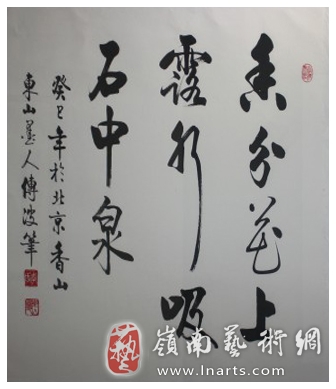 香分花上
露水吸
石中泉
癸巳年於北京香山
東山墨人傅波筆
藝
嶺南藝術網
www.lnarts.com